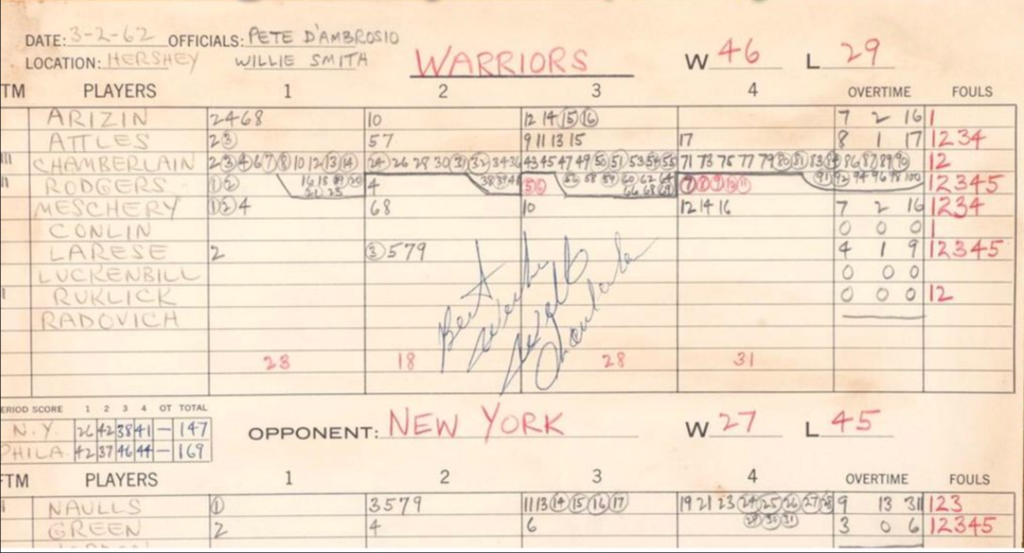 DATE: 3-2-62 OFFICIALS: PETE D'AMBROSIO
LOCATION: HERSHEY WILLIE SMITH WARRIORS W 46 L 29
TM PLAYERS 1 2 3 4 OVERTIME FOULS
ARIZIN 2 4 6 8 10 12 14 15 16 7 2 16 1
ATTLES 2 3 5 7 9 11 13 15 17 8 1 17 1 2 3 4
CHAMBERLAIN 2 3 4 6 7 8 10 12 13 14 24 26 28 30 31 32 34 36 43 45 47 49 50 51 53 54 55 71 73 75 77 79 80 81 83 84 86 87 89 90 1 2
16 18 19 20 38 39 41 56 58 59 60 62 64 91 92 94 96 98 100
21 23 66 68 69
RODGERS 1 2 4 5 6 7 8 9 10 11 1 2 3 4 5
MESCHERY 1 2 4 6 8 10 12 14 16 7 2 16 1 2 3 4
CONLIN 0 0 0 1
LARESE 2 3 5 7 9 4 1 9 1 2 3 4 5
LUCKENBILL 0 0 0
RUKLICK 0 0 0 1 2
RADOVICH
23 18 28 31
Best
Wishes
Wilt
Chamberlain
ERIOD SCORE 1 2 3 4 OT TOTAL
N.Y. 26 42 38 41 — 147
PHILA 42 37 46 44 — 169
OPPONENT: NEW YORK W 27 L 45
FTM PLAYERS 1 2 3 4 OVERTIME FOULS
NAULLS 1 3 5 7 9 11 13 14 15 16 17 19 21 23 24 25 26 27 28 9 13 31 1 2 3
29 30 31
GREEN 2 4 6 3 0 6 1 2 3 4 5